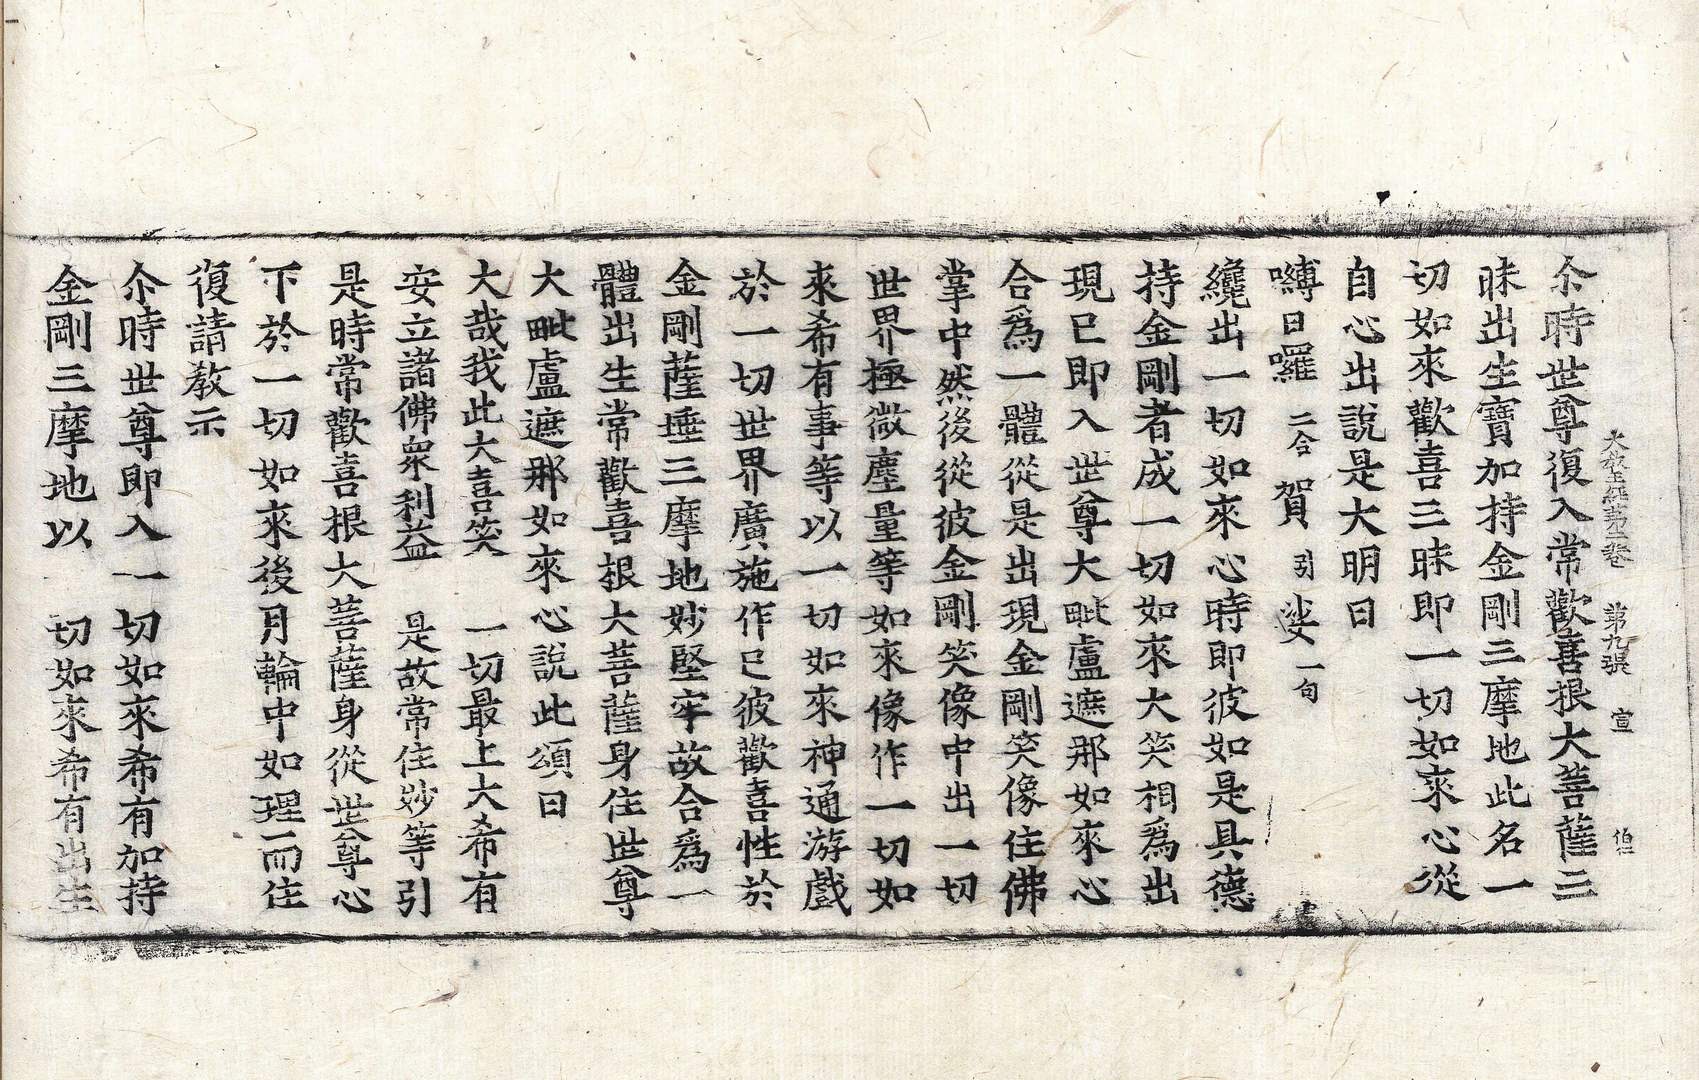 大教王經第二卷　第九張　宣　伯仁
尒時世尊復入常歡喜根大菩薩三
昧出生寶加持金剛三摩地此名一
切如來歡喜三昧即一切如來心從
自心出說是大明曰
嚩日囉二合賀引娑一句
纔出一切如來心時即彼如是具德
持金剛者成一切如來大笑相爲出
現已即入世尊大毗盧遮那如來心
合爲一體從是出現金剛笑像住佛
掌中然後從彼金剛笑像中出一切
世界極微塵量等如來像作一切如
來希有事等以一切如來神通游戲
於一切世界廣施作已彼歡喜性於
金剛薩埵三摩地妙堅牢故合爲一
體出生常歡喜根大菩薩身住世尊
大毗盧遮那如來心說此頌曰
大哉我此大喜笑　一切最上大希有
安立諸佛衆利益　是故常住妙等引
是時常歡喜根大菩薩身從世尊心
下於一切如來後月輪中如理而住
復請教示
尒時世尊即入一切如來希有加持
金剛三摩地以　切如來希有出生